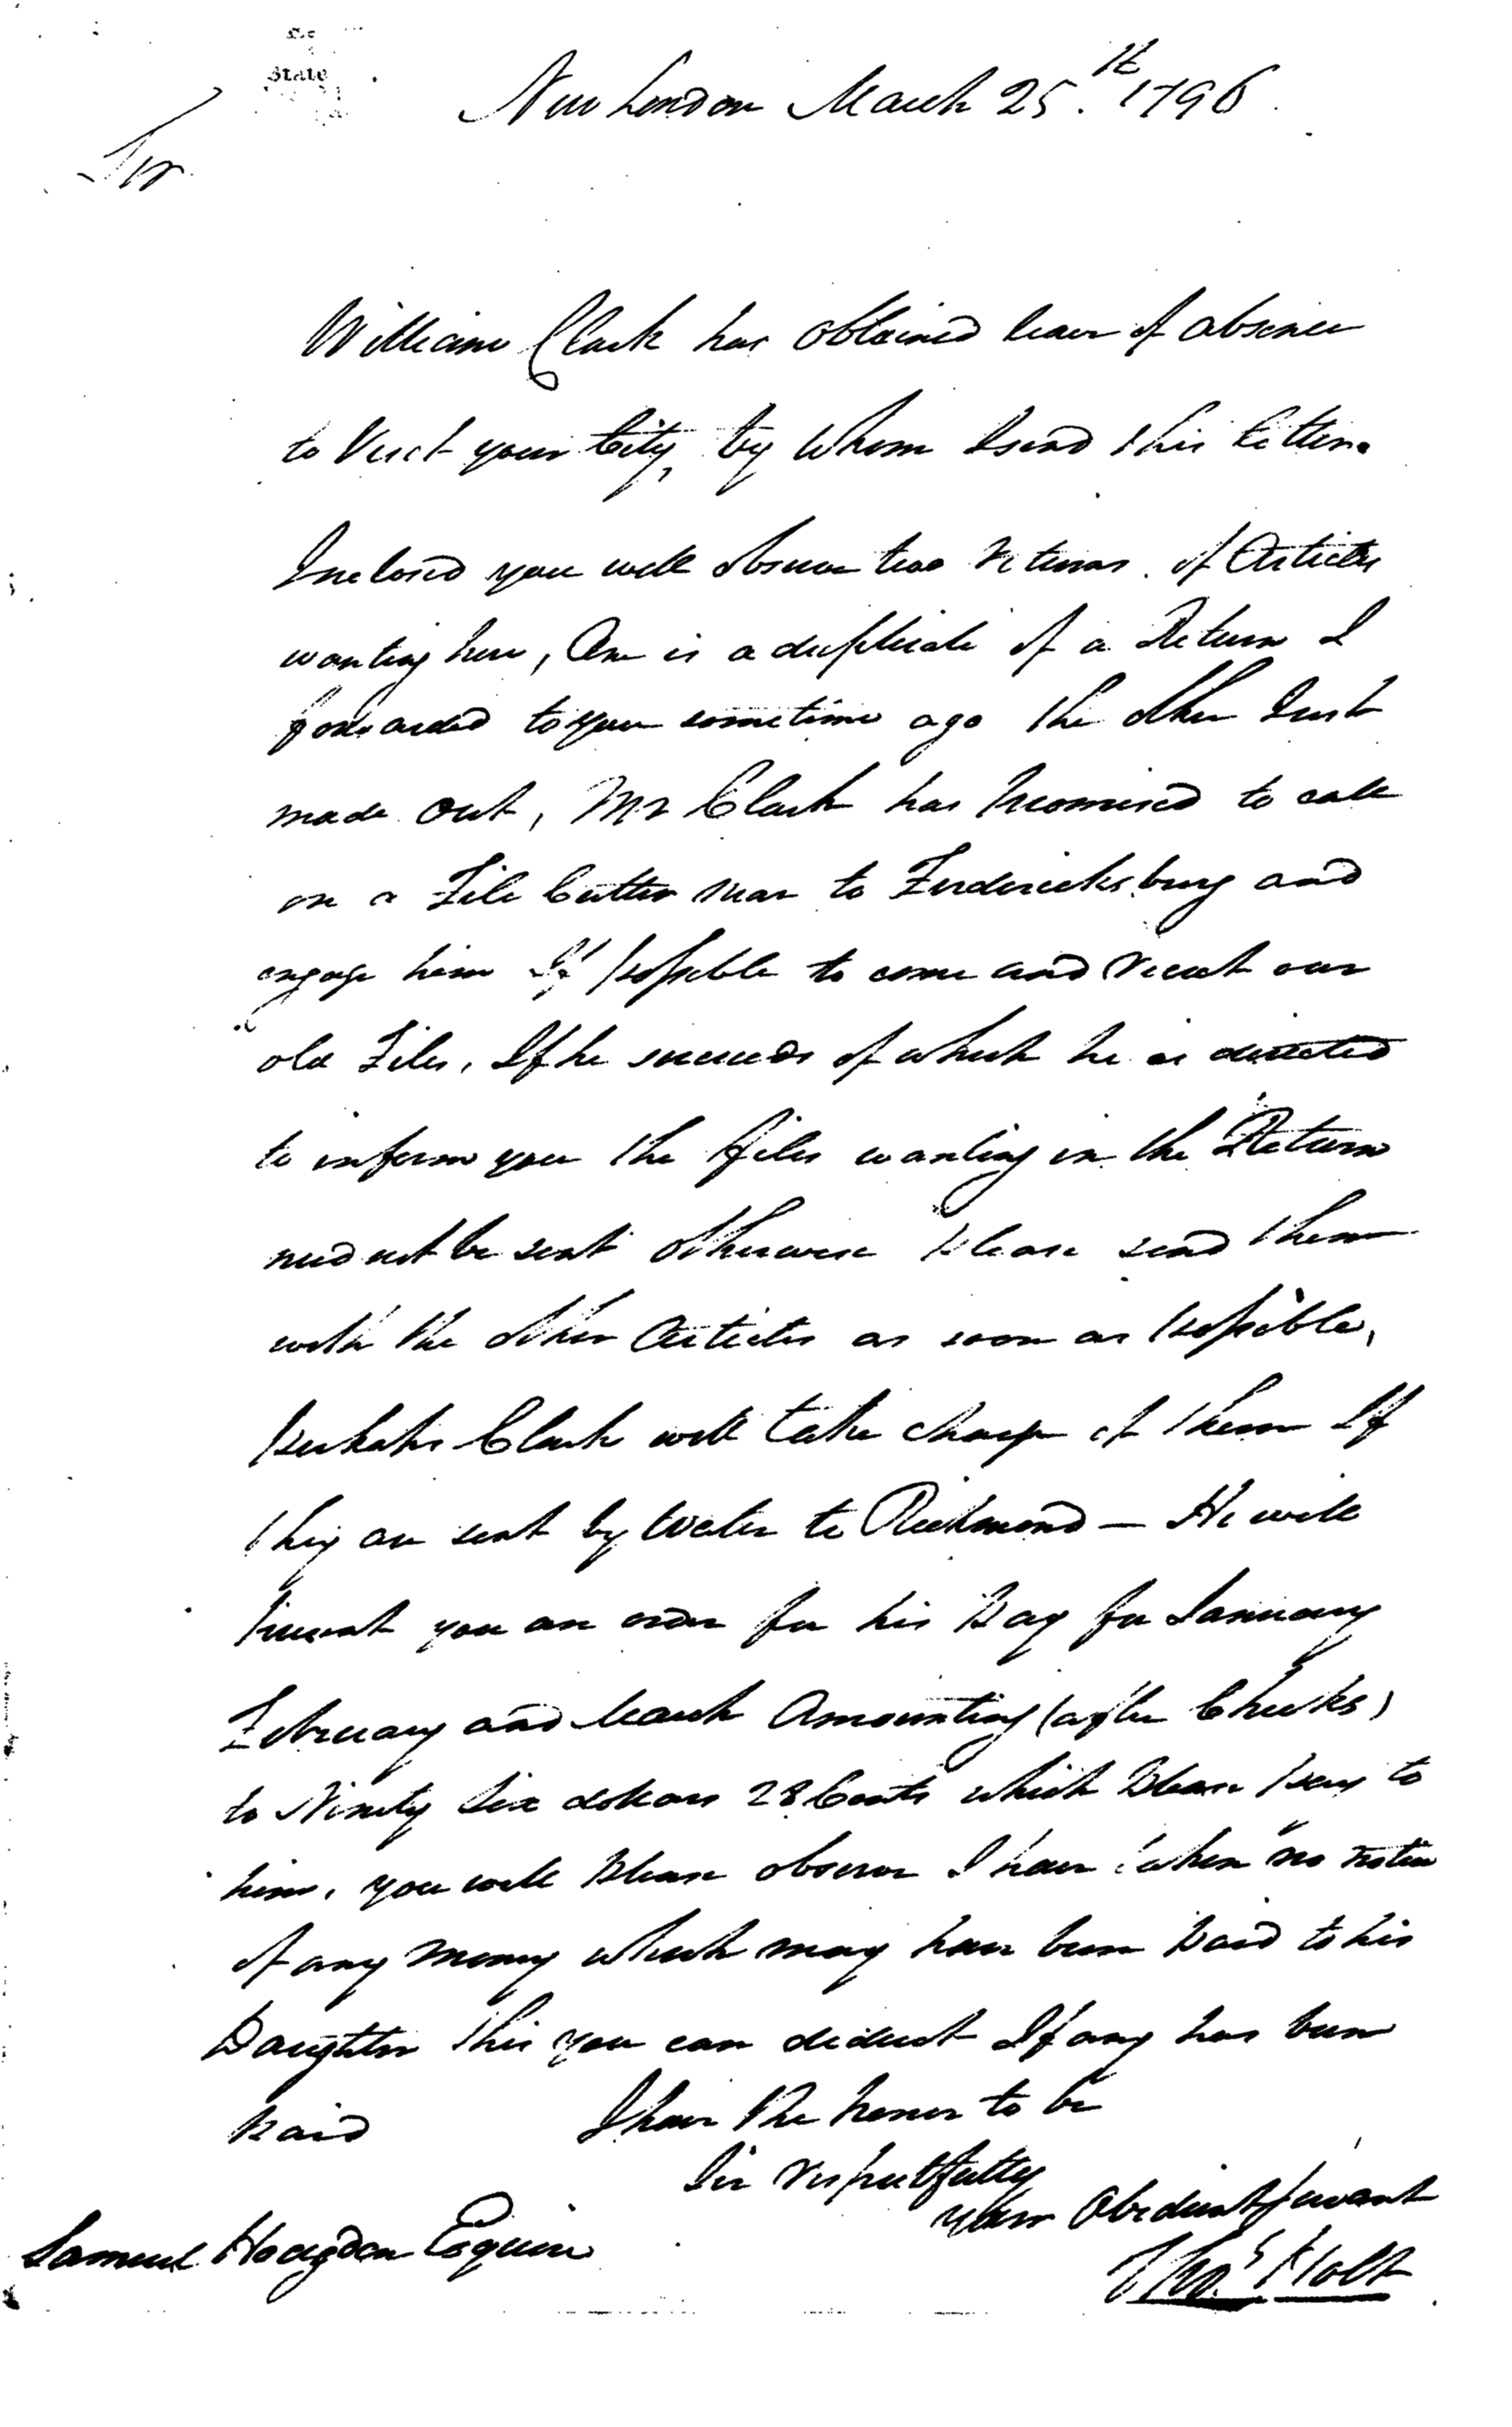 State
New London March 25.th 1796
Sir
William Clark has obtained leave of absence
to Visit your City, by Whom I send this Letter.
Inclosed you will observe two Returns of Articles
wanting here, One is a duplicate of a Return I
forwarded to you sometime ago the other Just
made out, Mr Clark has promised to call
on a File Cutter near to Fredericksburg and
engage him If possible to come and recut our
old Files, If he succeeds of which he is directed
to inform you the files wanting in the Return
need not be sent otherwise please send them
with the other Articles as soon as possible,
perhaps Clark will take charge of them If
they are sent by Water to Richmond — He will
present you an order for his Pay for January
February and March Amounting (after Checks)
to Ninety Six dollars 28 Cents which Please pay to
him, you will Please observe I have taken no notice
of any money which may have been Paid to his
Daughter this you can deduct If any has been
Paid I have the honor to be
Sir respectfully
your Obedient Servant
Samuel Hodgdon Esquire
Thos Holt